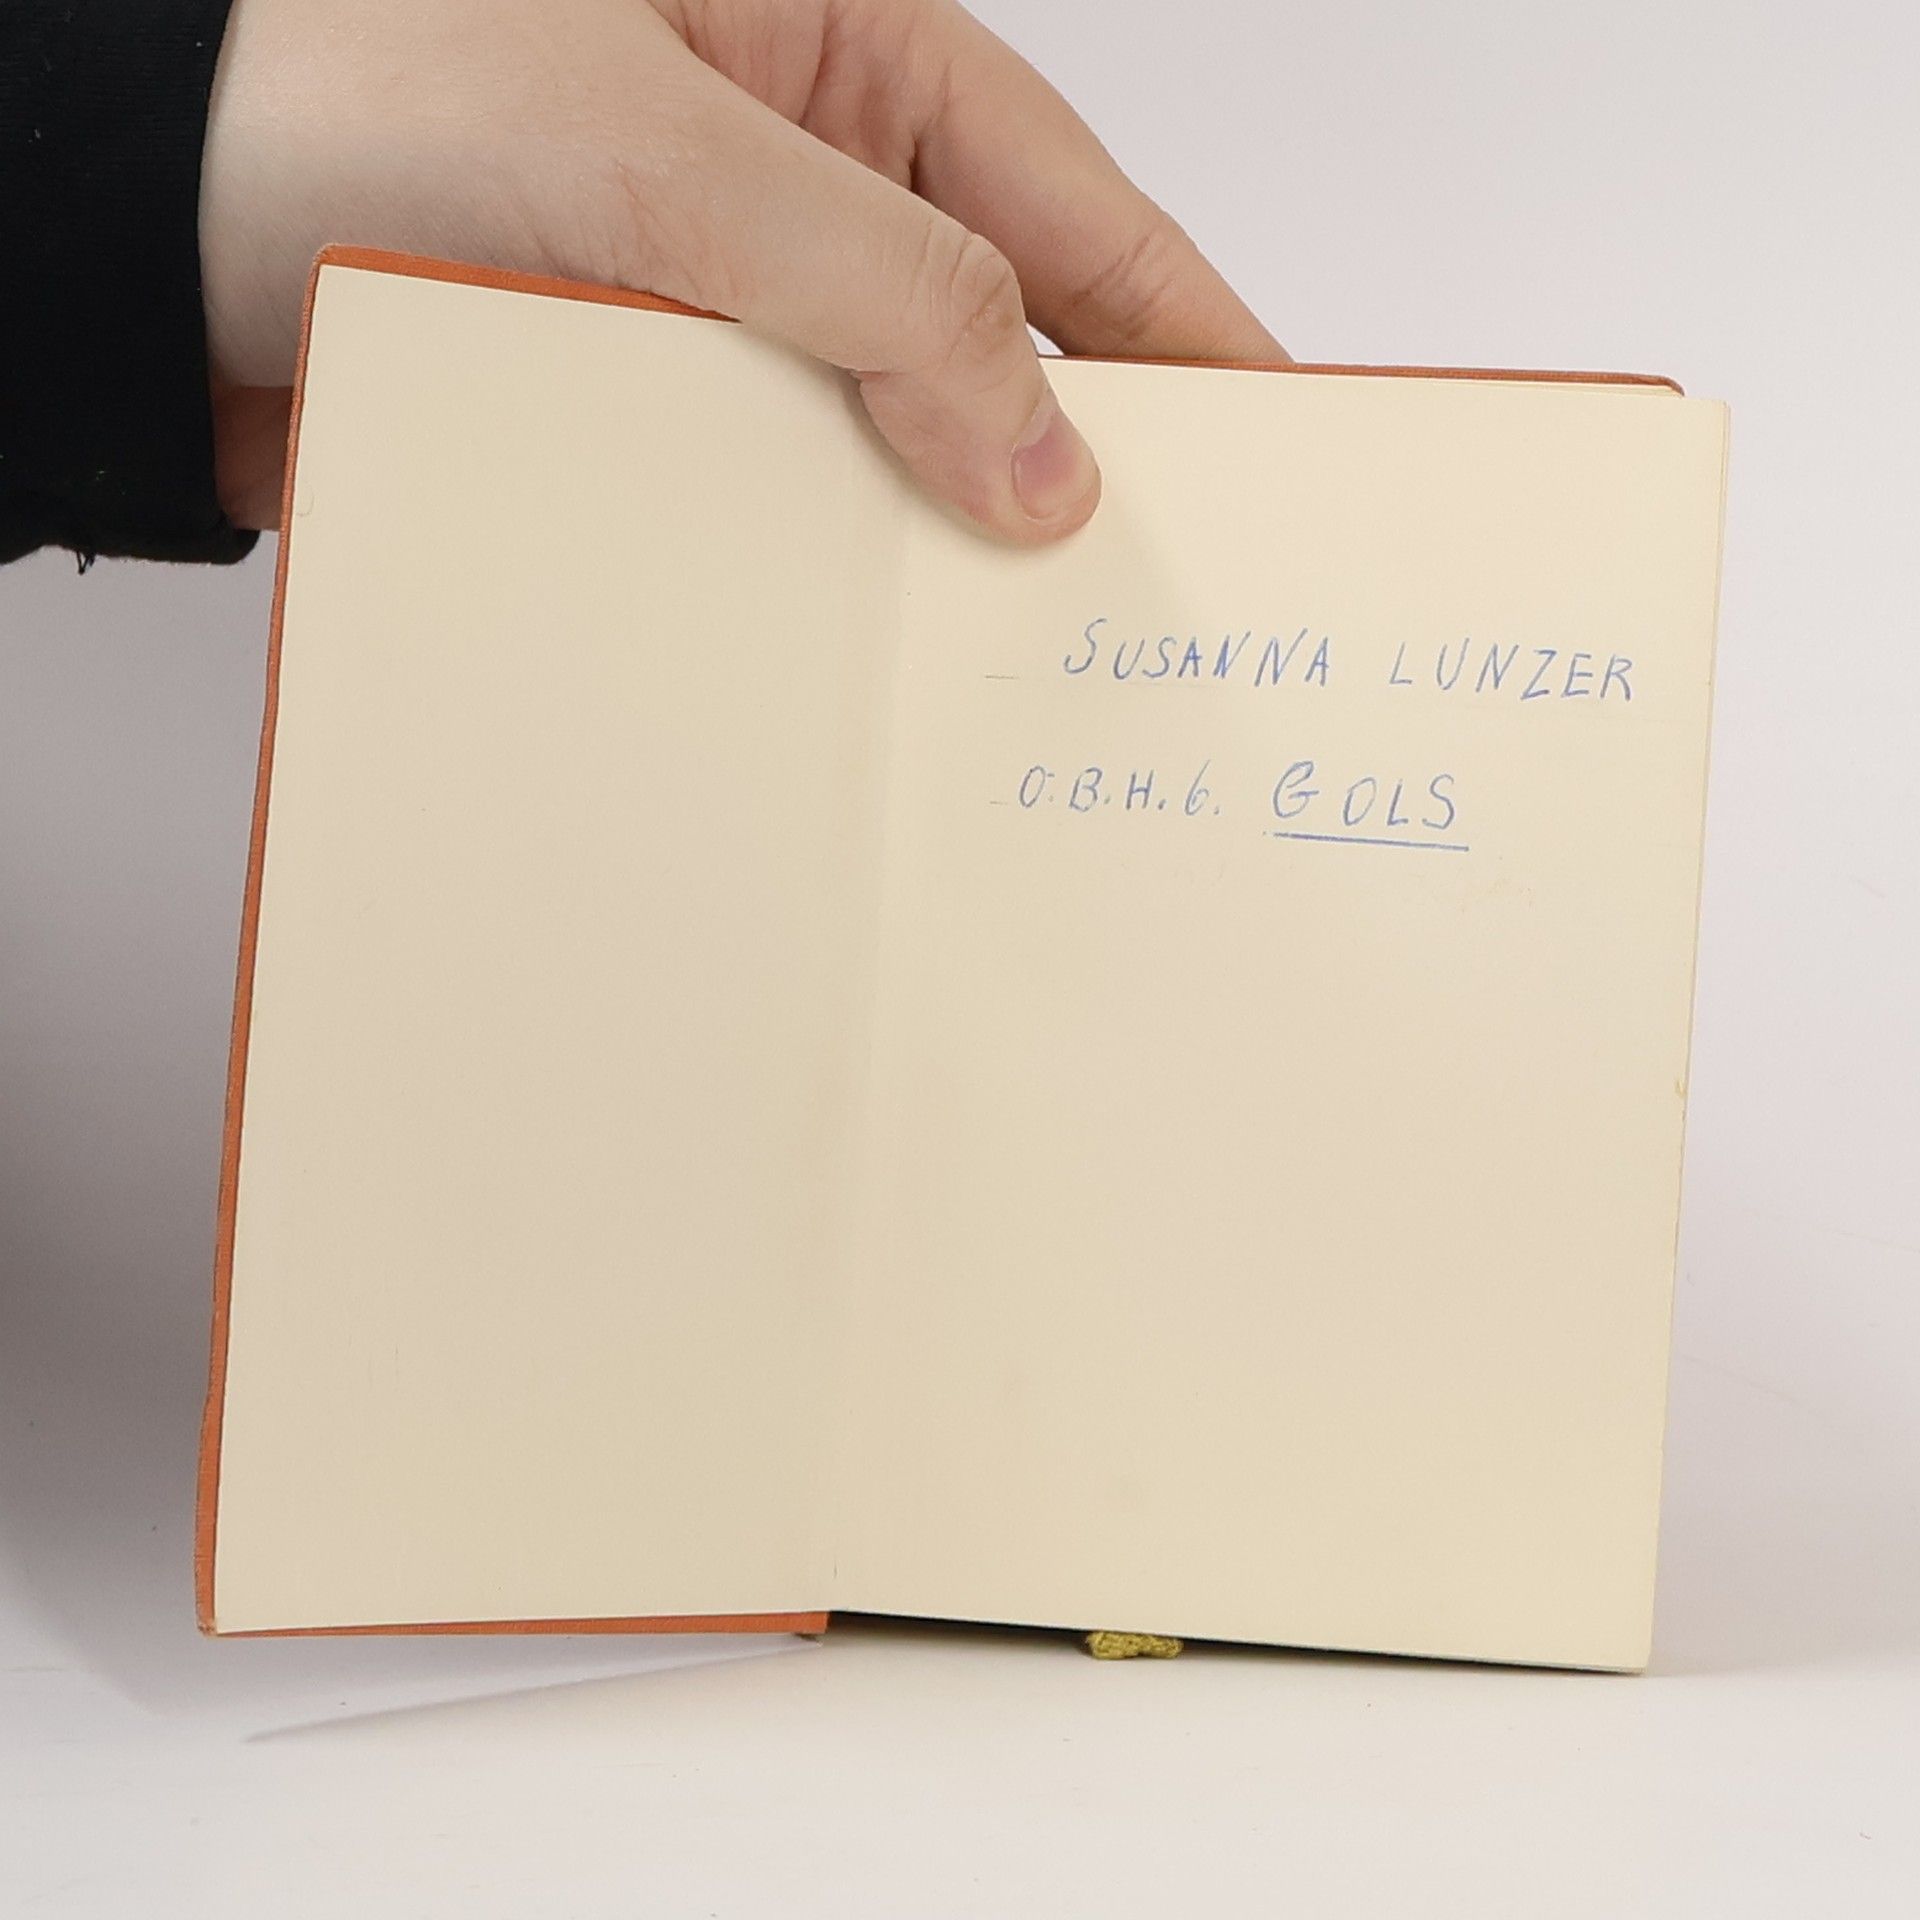 SUSANNA LUNZER
O.B.H.G. GOLS